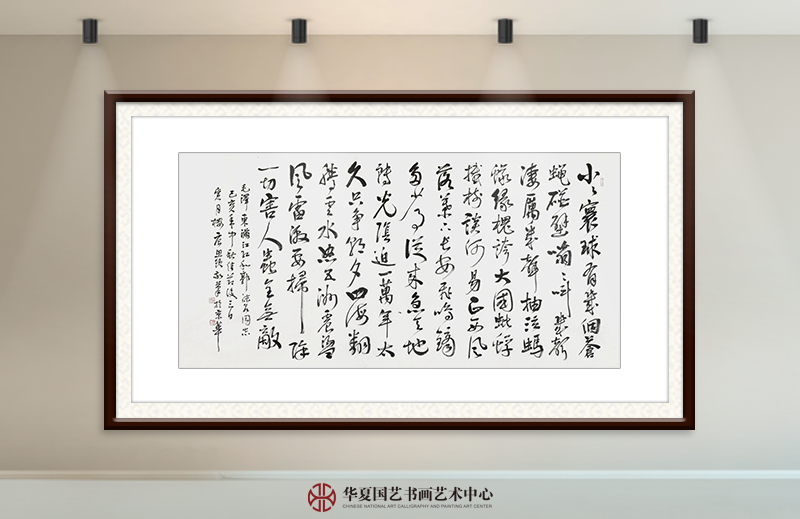 小々寰球有幾個蒼
蝇碰壁嗡々叫幾聲
凄厲幾聲抽泣螞
蟻緣槐誇大國蚍蜉
撼樹談何易正西風
落葉下長安飛鳴鏑
多少事從來急天地
轉光陰迫一萬年太
久只爭朝夕四海翻
騰雲水怒五洲震盪
風雷激要掃除
一切害人蟲全無敵
毛澤東滿江紅和郭沫若同志
己亥年中秋佳節後三日
於京華
华夏国艺书画艺术中心
CHINESE NATIONAL ART CALLIGRAPHY AND PAINTING ART CENTER